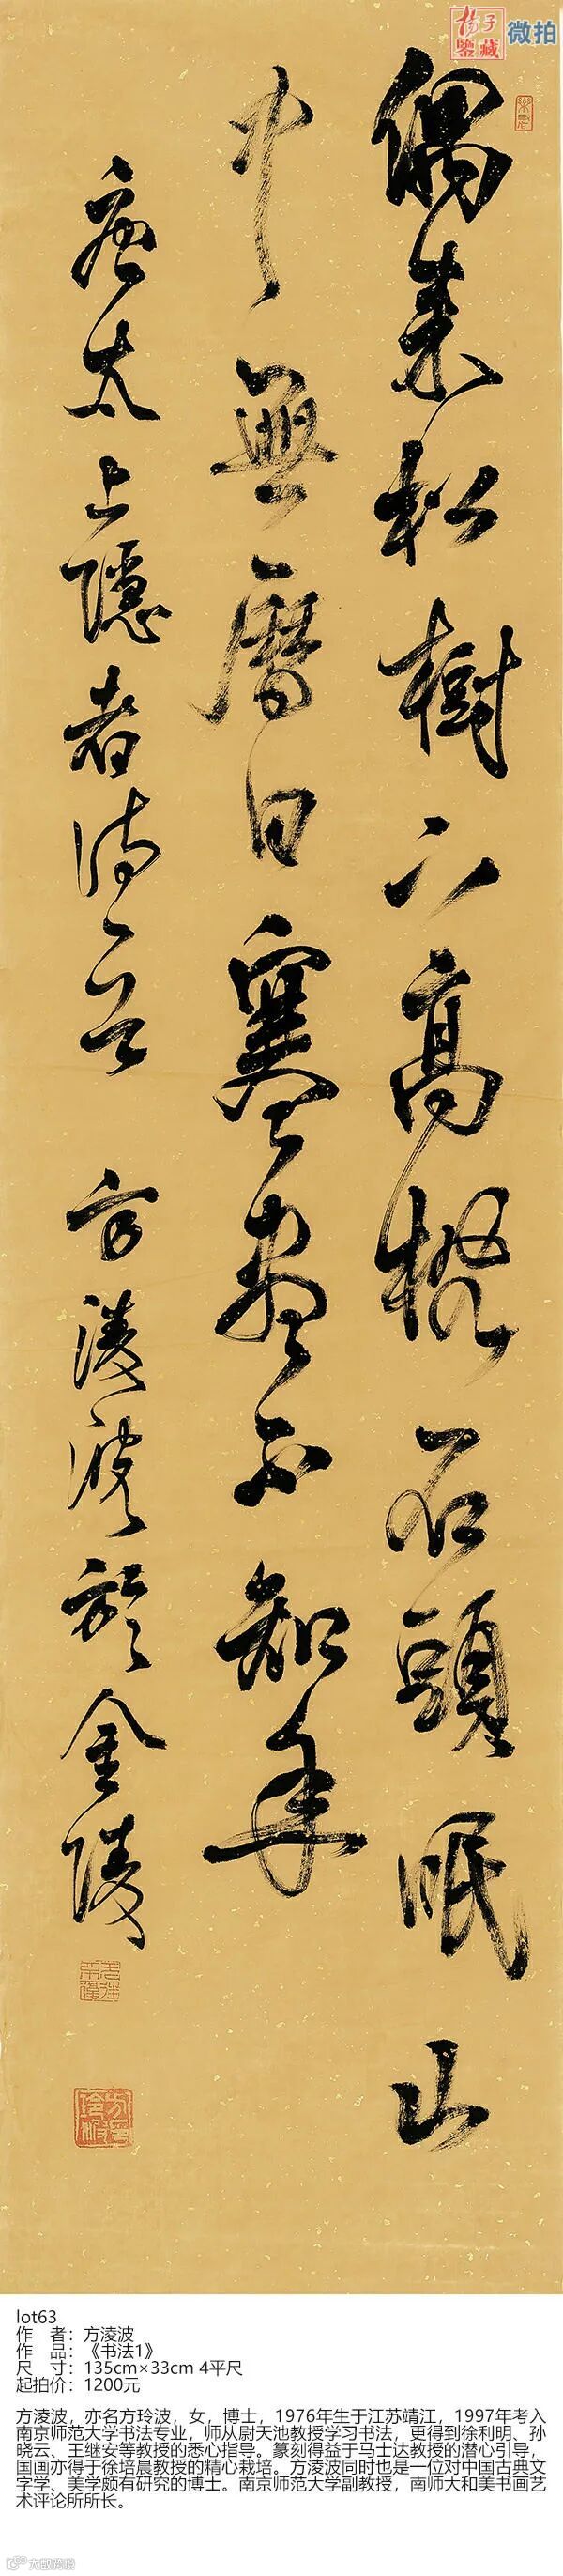 楊子
鑒藏
微拍
偶来松樹下高枕石頭眠山
中無曆日寒盡不知年
唐太上隱者詩一首 方淩波於金陵
lot63
作 者：方淩波
作 品：《书法1》
尺 寸：135cm×33cm 4平尺
起拍价：1200元
方淩波，亦名方玲波，女，博士，1976年生于江苏靖江，1997年考入
南京师范大学书法专业，师从尉天池教授学习书法，更得到徐利明、孙
晓云、王继安等教授的悉心指导。篆刻得益于马士达教授的潜心引导，
国画亦得于徐培晨教授的精心栽培。方淩波同时也是一位对中国古典文
字学、美学颇有研究的博士。南京师范大学副教授，南师大和美书画艺
术评论所所长。
大数跨境